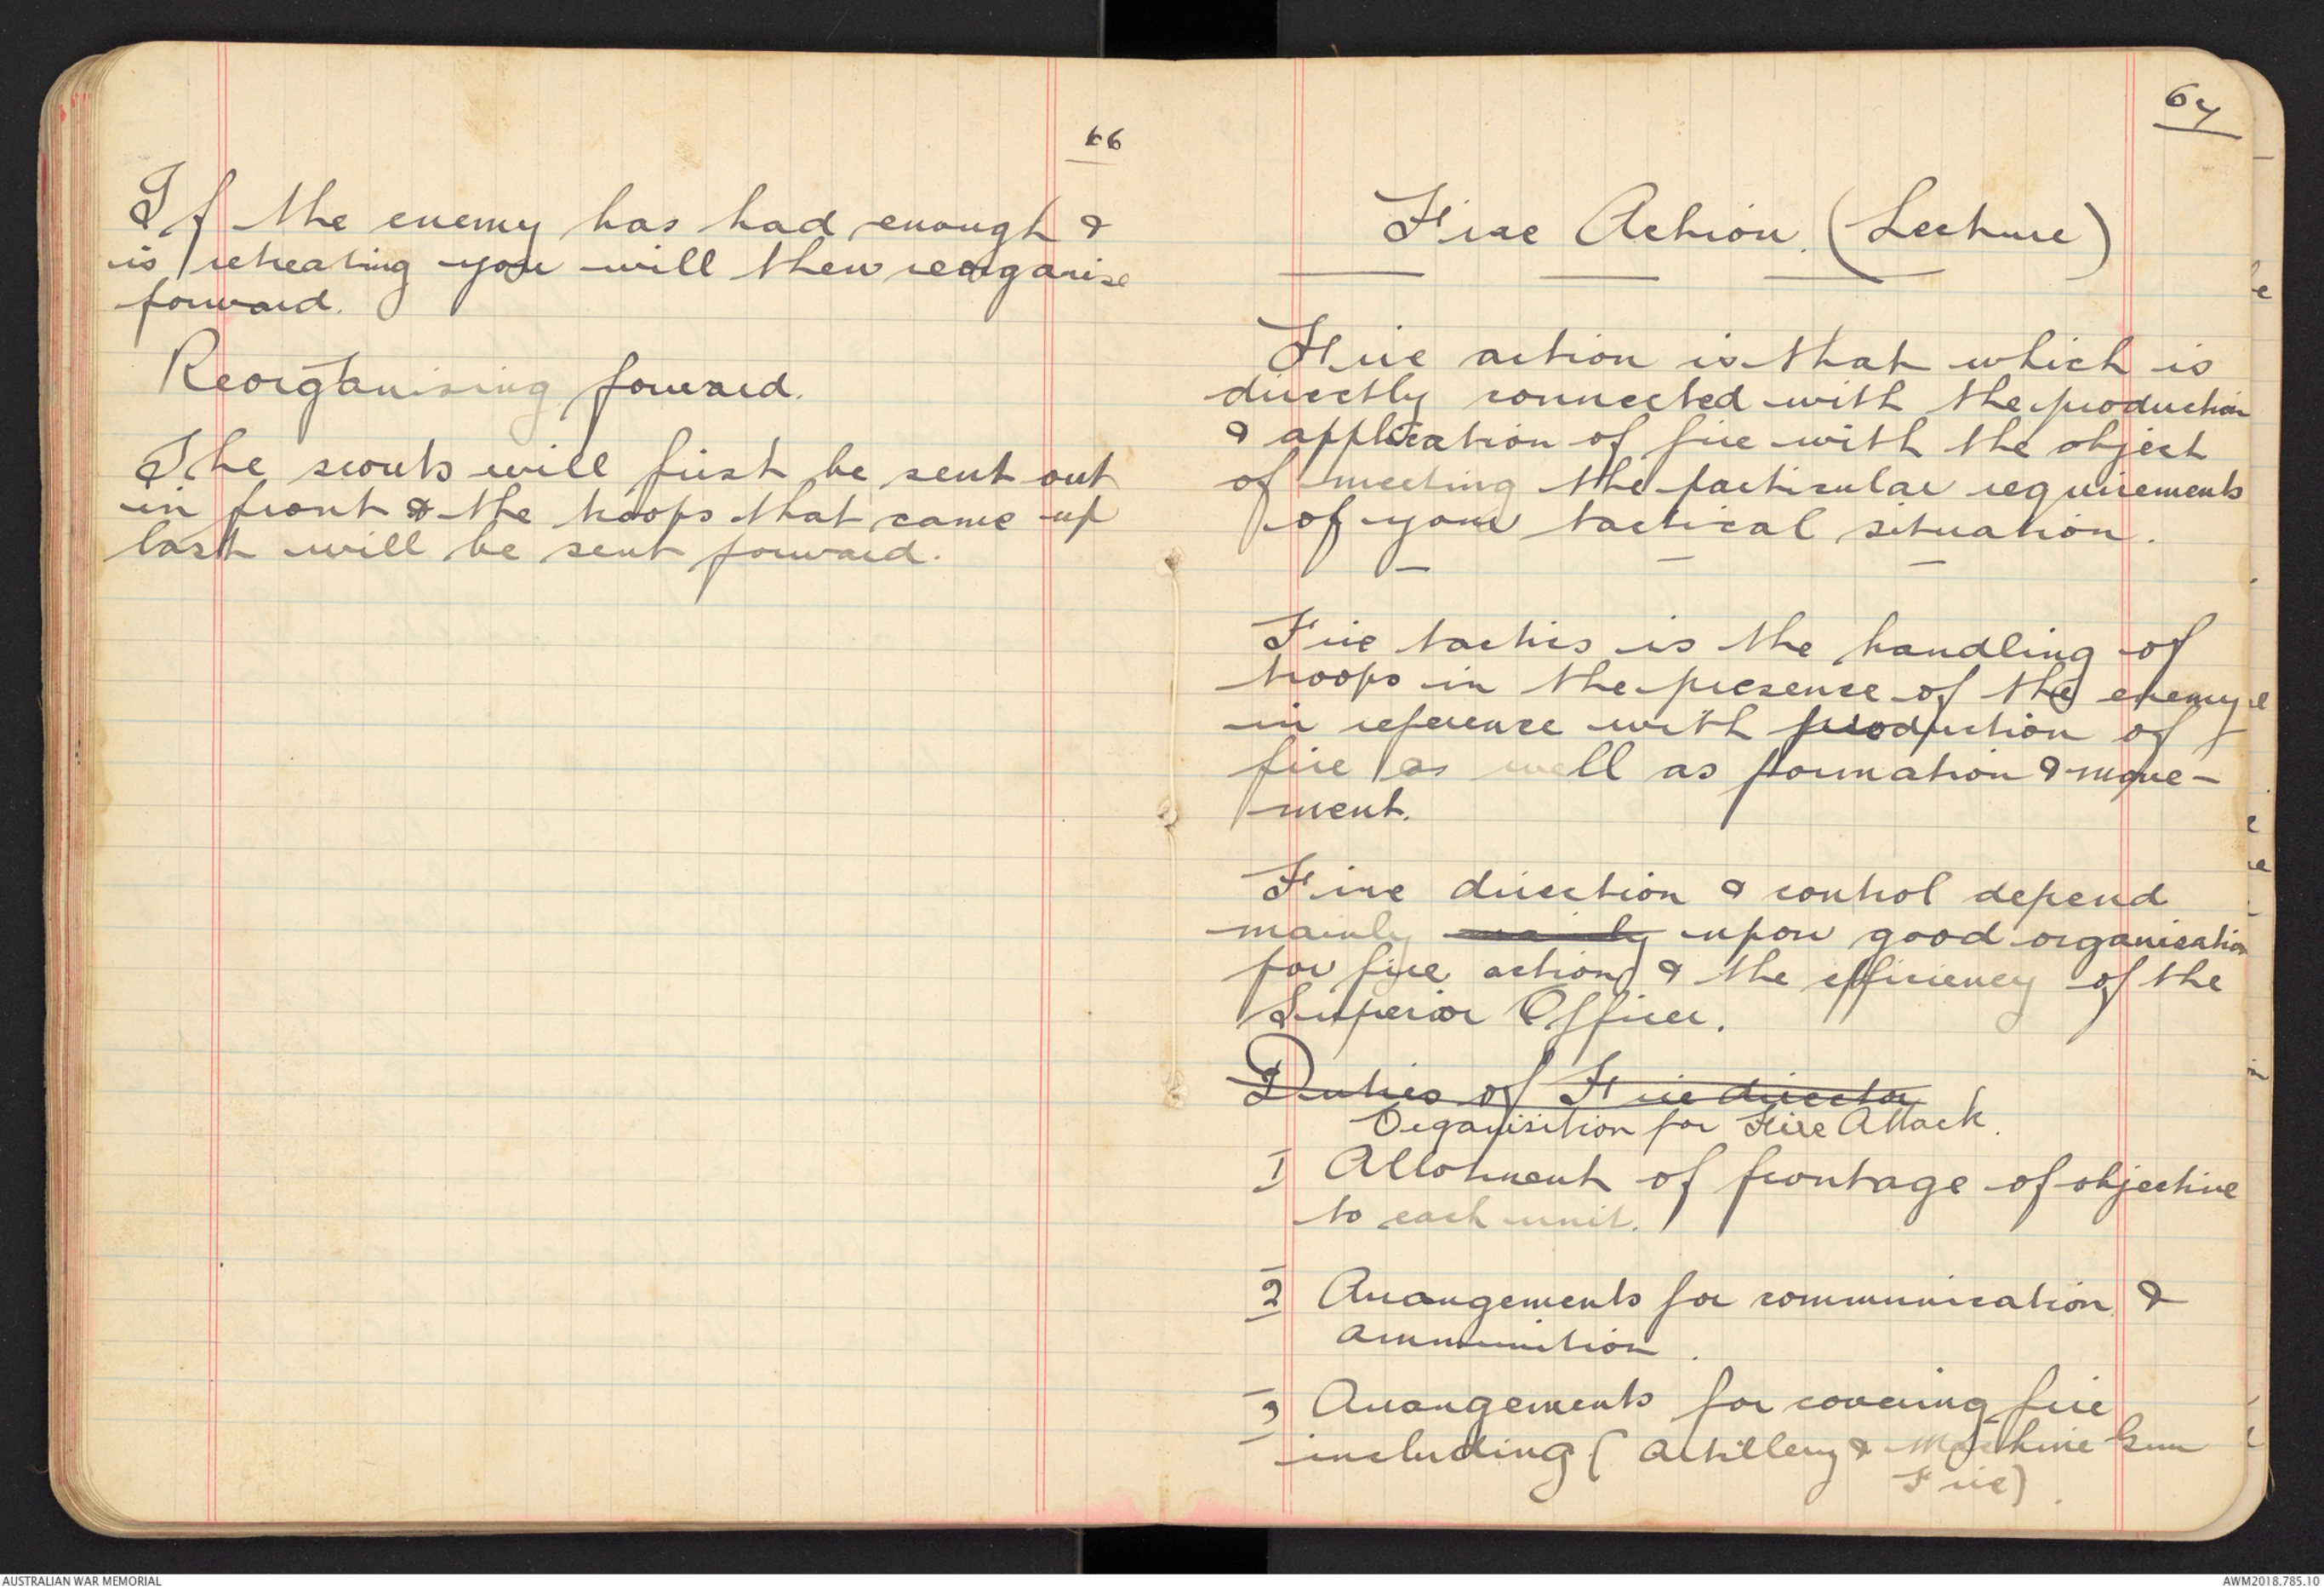 66
If the enemy has had enough &
is retreating you will then reorganise
forward.
Reorganising forward.
The scouts will first be sent out
in front & the troops that came up
last will be sent forward.
67
Fire Action. (Lecture)
Fire action is that which is
directly connected with the production
& application of fire with the object
of meeting the particular requirements
of your tactical situation.
Fire tactics is the handling of
troops in the presence of the enemy
in reference with production of
fire as well as formation & move-
ment.
Fire direction & control depend
mainly mainly upon good organisation
for fire action & the efficiency of the
Superior Officer.
Duties of Fire director
Organisition for Fire Attack.
1 Allotment of frontage of objective
to each unit.
2 Arrangements for communication &
ammunition.
3 Arrangements for covering fire
including (Artillery & Machine Gun
Fire).
AUSTRALIAN WAR MEMORIAL
AWM2018.785.10